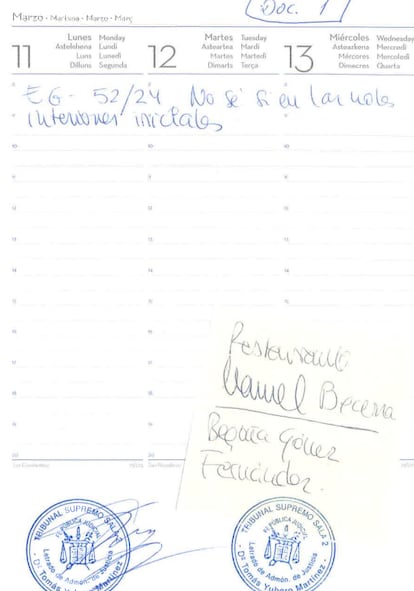 Doc. 1
Marzo · Martxoa · Marzo · Març
11 Lunes Monday
Astelehena Lundi
Luns Lunedì
Dilluns Segunda
12 Martes Tuesday
Asteartea Mardi
Martes Martedì
Dimarts Terça
13 Miércoles Wednesday
Asteazkena Mercredi
Mércores Mercoledì
Dimecres Quarta
EG - 52/24 No sé si en las notas
interiores iniciales
Restaurante
Manuel Becerra
Begoña Gómez
Fernández.
TRIBUNAL SUPREMO SALA 2
FE PÚBLICA JUDICIAL
Letrado de Admón. de Justicia
D. Tomás Yubero Martínez
TRIBUNAL SUPREMO SALA 2
FE PÚBLICA JUDICIAL
Letrado de Admón. de Justicia
D. Tomás Yubero Martínez